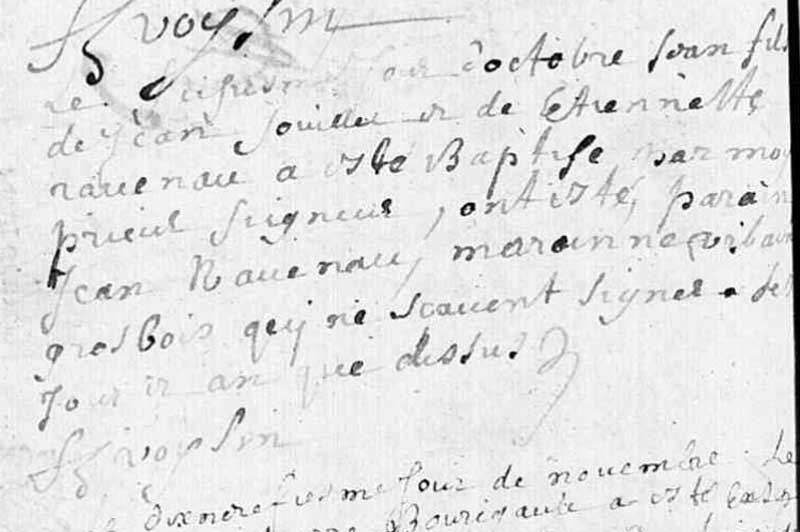 f voysin
Le jour d'octobre Jean fils
de Jean Souillet et de Etiennette
rauenau a esté Baptise par moy
prieur seigneur, ont esté parain
Jean Rauenau, marainne
grosbois quy ne scauent signer. les
Jour et an que dessus
f voysin
Jour de nouembre Le
Bourigault a esté